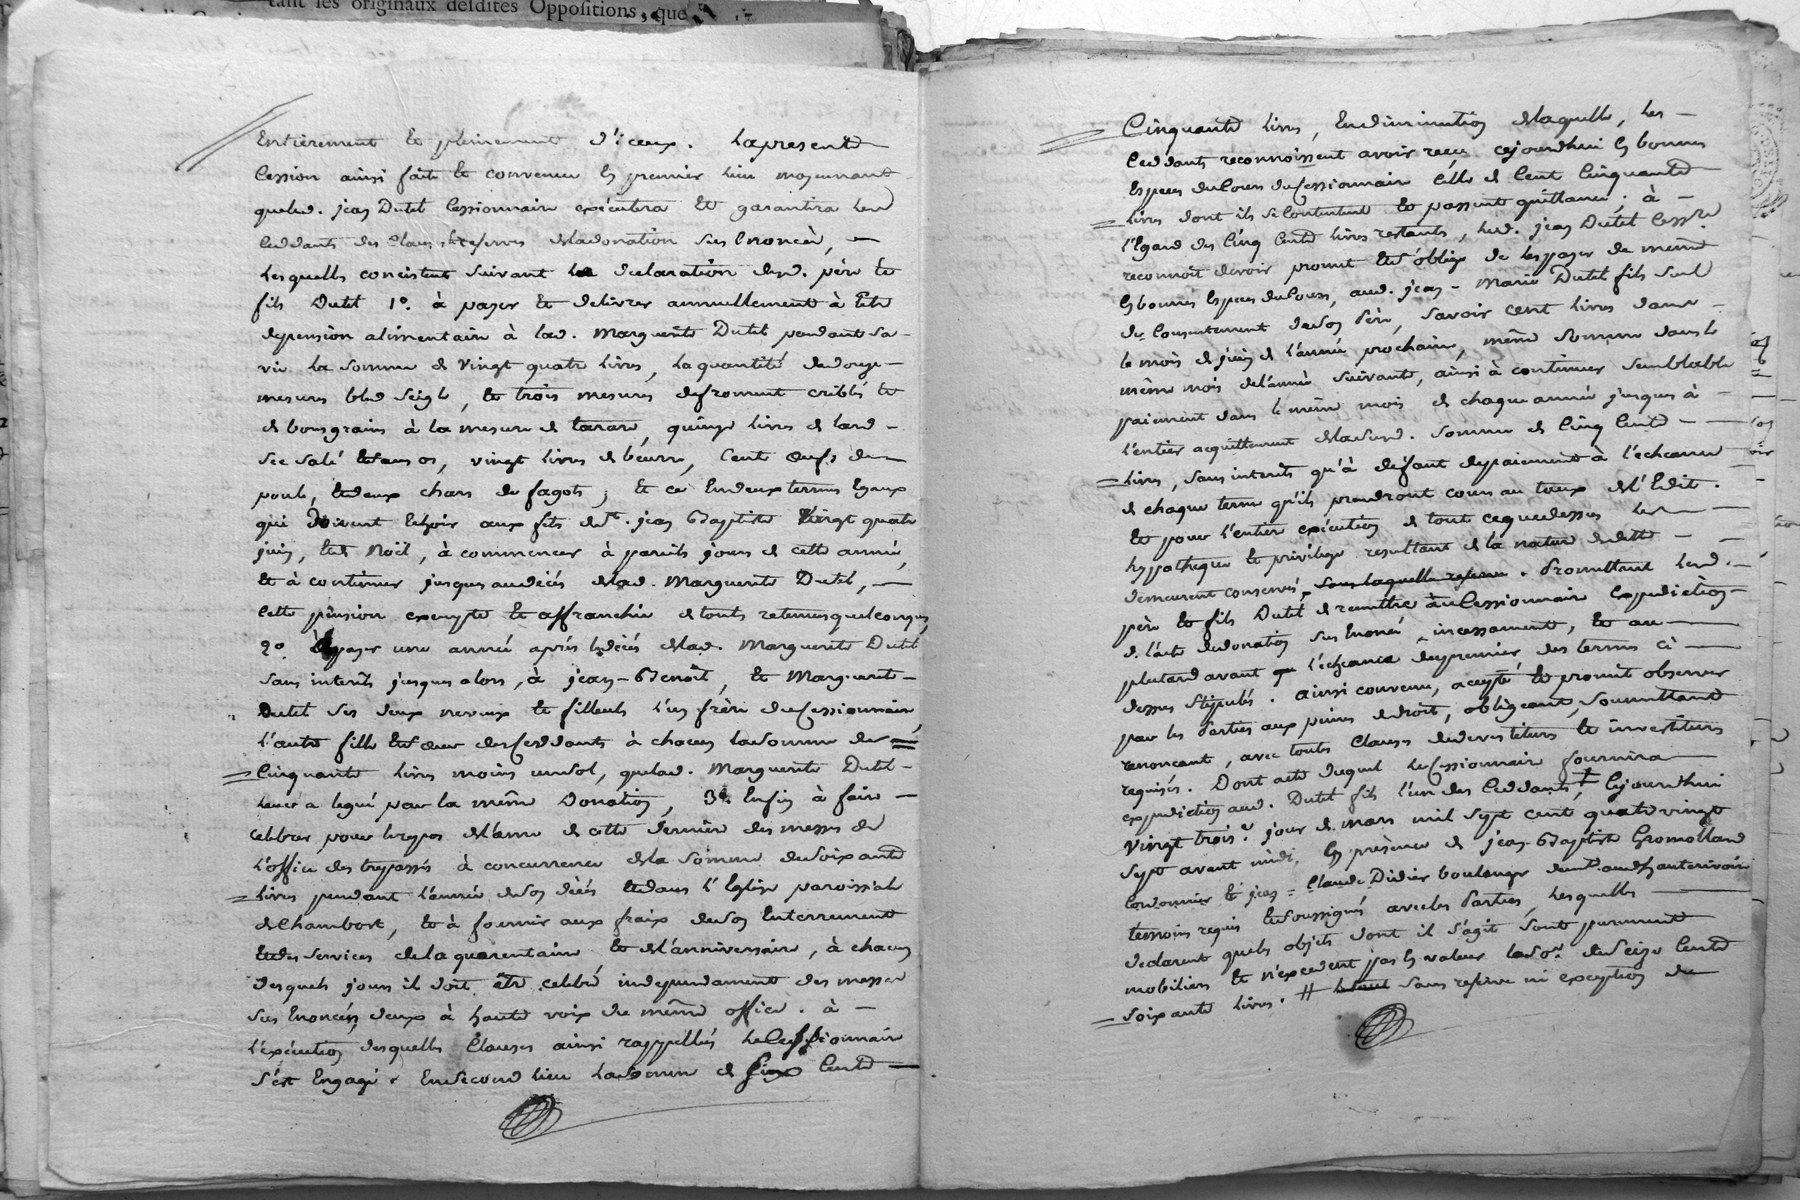 tant les originaux desdites Oppositions, que
Entierement et pleinement d'iceux. Lapresente
Cession ainsi faite et convenue En premier lieu moyennant
queled. jean Dutel Cessionnaire exécutera et garantira lesd
Ceddants des Clauses et reserves deladonation sus Enoncée,
Lesquelles concistent suivant la declaration desd. père et
fils Dutel 1º. à payer et delivrer annuellement à titre
depension alimentaire à lad. Marguerite Dutel pendant sa
vie la somme de vingt quatre livres, la quantité dedouze
mesures bled seigle, et trois mesures defroment criblés et
de bons grains à la mesure de tarare, quinze livres de lard
sec salé et sans os, vingt livres de beurre, Cent œufs de
poule, et deux chars de fagots; et ce Endeux termes Egaux
qui doivent Echoir aux fêts de St. jean Baptiste vingt quatre
juin, et de Noël, à commencer à pareils jours de cette année,
et à continuer jusques audécés delad. Marguerite Dutel,
Cette pension exempte et affranchie de touts retenues quelconques,
2º. à payer une année après le décés delad. Marguerite Dutel
sans interêts jusques alors, à jean-Benoît, et Marguerite
Dutel ses deux neveux et filleuls l'un frère du Cessionnaire,
l'autre fille et sœur des Ceddants à chacun la somme de
Cinquante livres moins un sol, quelad. Marguerite Dutel
leur a legué par la même Donation, 3º. Enfin à faire
celebrer pour le repos de l'ame de cette dernière des messes de
l'office des trepassés à concurrence de la somme de soixante
livres pendant l'année de son décés et dans l'Eglise paroissiale
de Chambost, et à fournir aux fraix de son Enterrement
et des services de la quarentaine et de l'anniversaire, à chacun
desquels jours il doit être celebré independament des messes
sus Enoncées, deux à haute voix du même office. à
l'exécution desquelles Clauses ainsi rappellées le Cessionnaire
s'est Engagé. En second lieu la somme de six Cents
Cinquante livres, En diminution de laquelle, Les
Ceddants reconnoissent avoir reçu cejourdhui En bonnes
Especes du Cours du Cessionnaire Celle de Cent Cinquante
livres dont ils se Contentent et passent quittance; à
l'Egard des Cinq Cents livres restants, led. jean Dutel Cessre.
reconnoit devoir promet et s'oblige de les payer de même
En bonnes Especes du Cours, aud. jean-Marie Dutel fils seul
du Consentement de son Père, savoir cent livres dans
le mois de juin de l'année prochaine, même somme dans le
même mois de l'année suivante, ainsi à continuer semblable
paiement dans le même mois de chaque année jusques à
l'entier acquittement de lasusd. somme de Cinq Cents
livres, sans interêts qu'à defaut depaiement à l'echeance
de chaque terme qu'ils prendront cours au taux de l'Edit.
et pour l'entier exécution de tout ce que dessus les
hypotheques et privilege resultant de la nature de dette
demeurent conservés, sous laquelle reserve. Promettent lesd.
père et fils Dutel de remettre au Cessionnaire expedition
de l'acte de donation sus Enoncé incessament, et au
plutard avant l'echeance du premier des termes ci
dessus stipulés. ainsi convenu, accepté et promit observer
par les Parties aux peines de droit, obligeant, soumettant
renonceant, avec toutes Clauses de devestiture et investiture
requises. Dont acte duquel le Cessionnaire fournira
expedition aud. Dutel fils l'un des Ceddants, Cejourdhui
vingt trois. jour de mars mil sept cent quatre vingt
sept avant midi, En présence de jean-Baptiste Gromolland
Cordonnier et jean-Claude Didier boulanger
temoins requis et soussignés avec les Parties, lesquelles
declarent que les objets dont il s'agit sont purement
mobiliers et n'excedent pas En valeur la so. de seize Cents
soixante livres. # sans reserve ni exception de